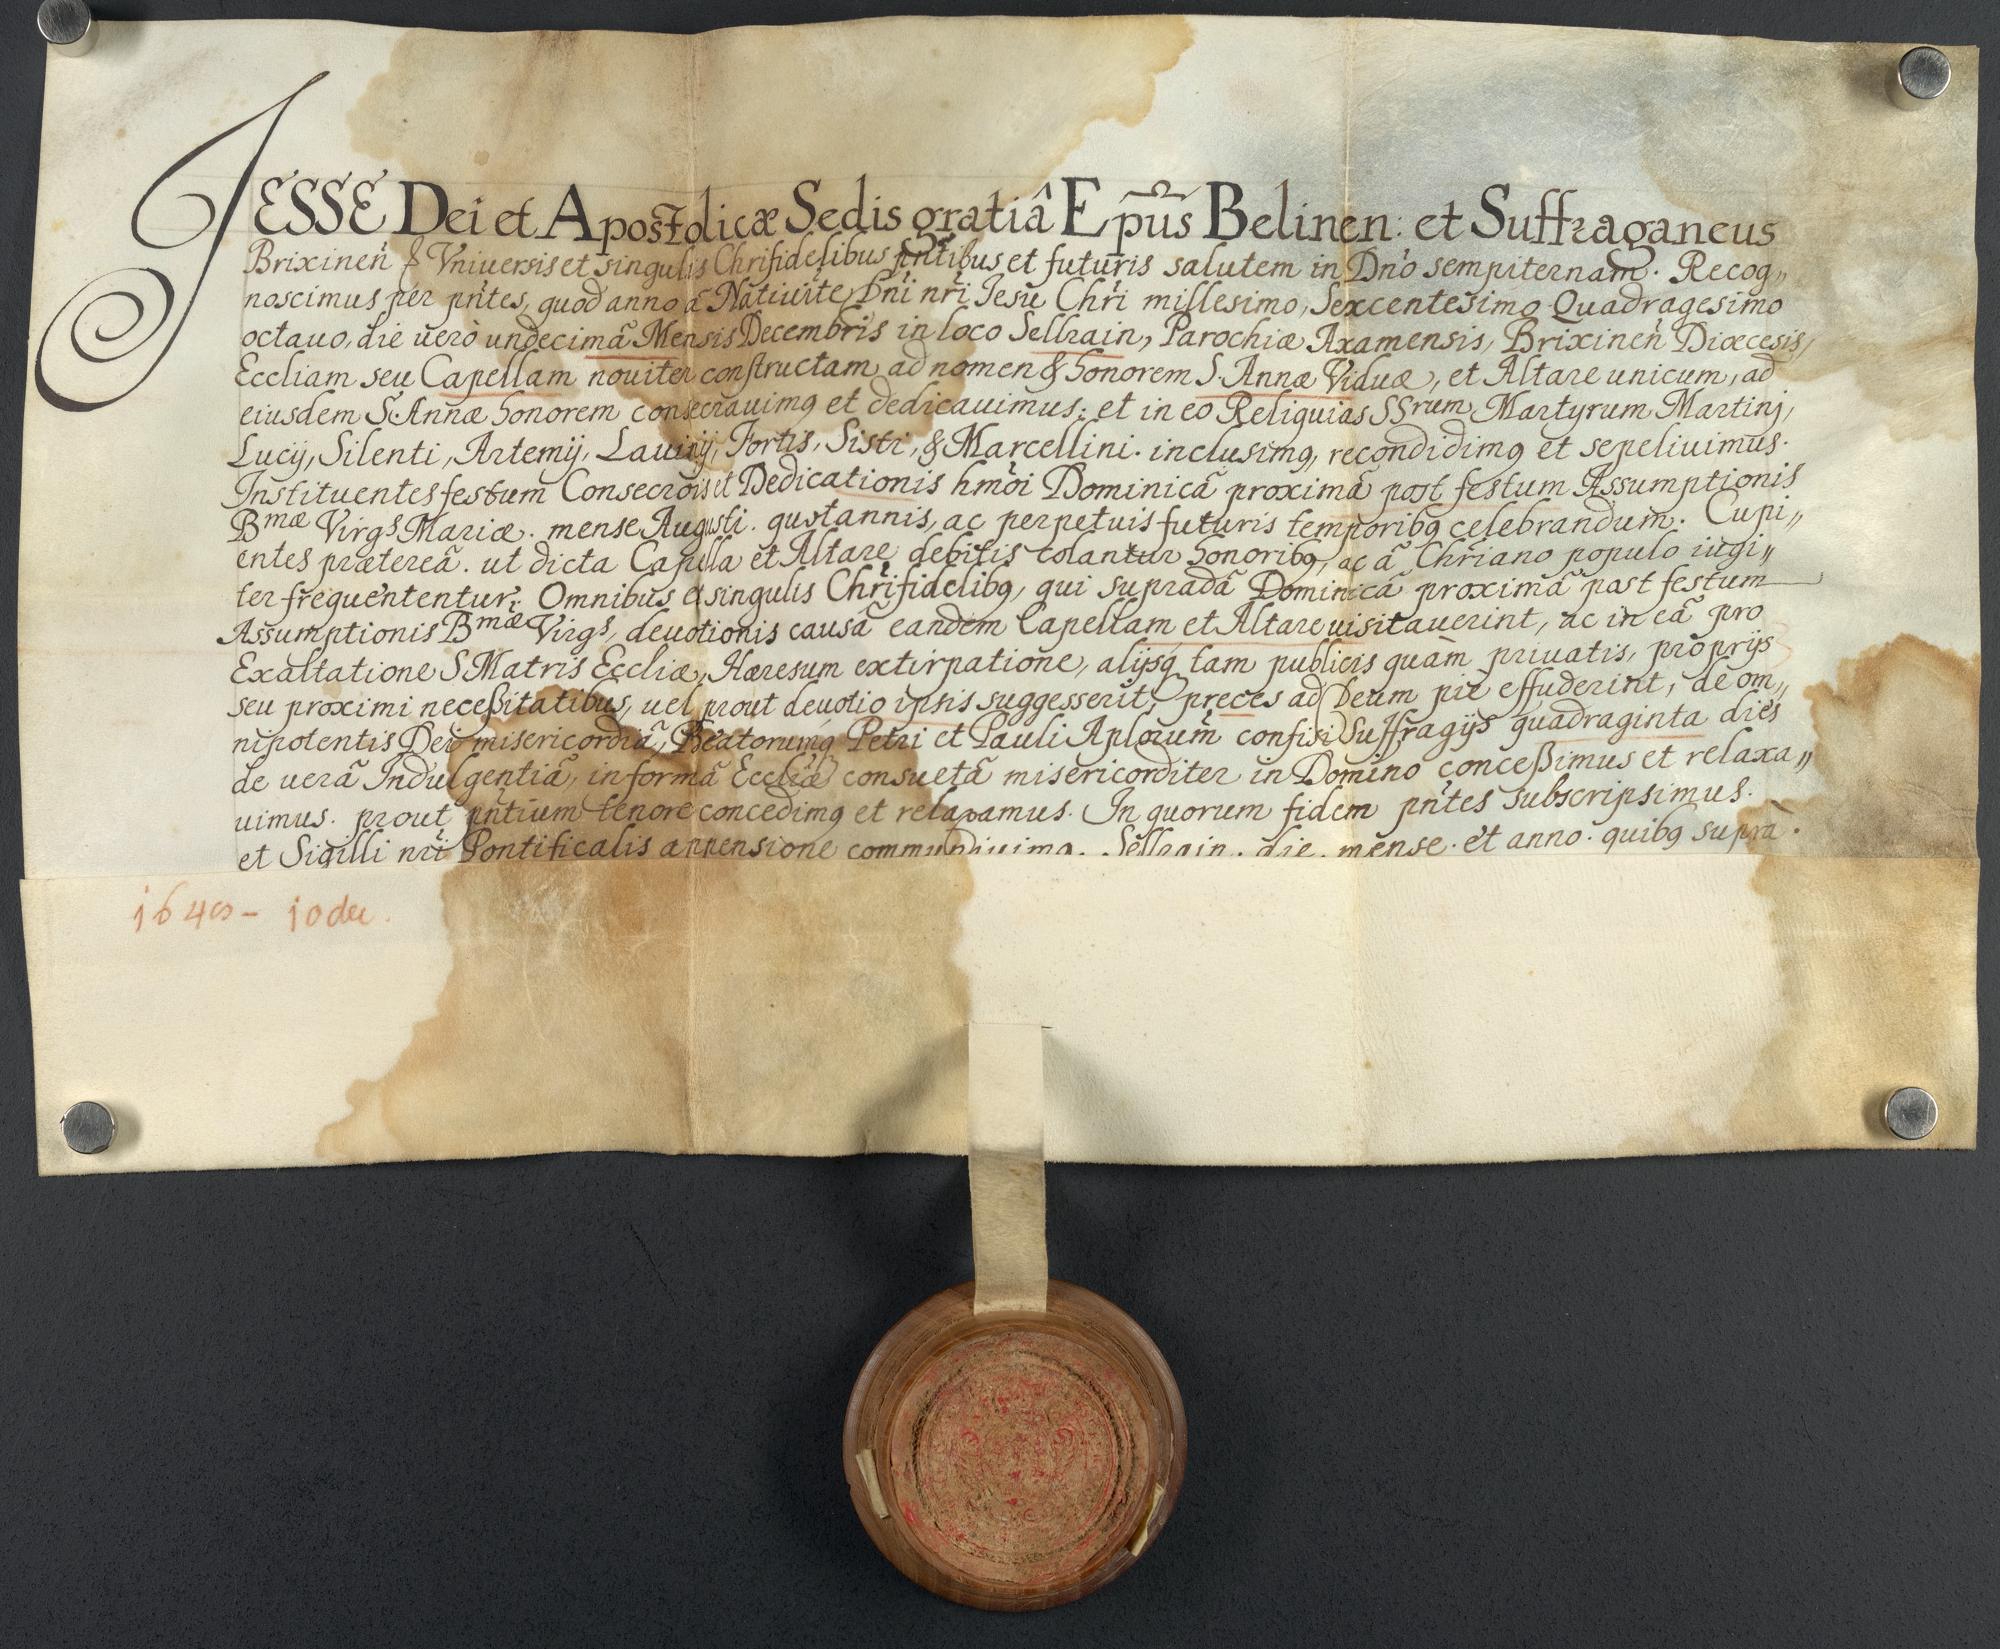 JESSE Dei et Apostolicæ Sedis gratiâ Epūs Belinen: et Suffraganeus
Brixinen̄ & Vniuersis et singulis Chrifidelibus pn̄tibus et futuris salutem in Dn̄o sempiternam. Recog,,
noscimus per pn̄tes, quod anno â Natiuite Dn̄i nr̄i Jesu Chr̄i millesimo, Sexcentesimo Quadragesimo
octauo, die uerò undecimâ Mensis Decembris in loco Sellrain, Parochiæ Axamensis, Brixinen̄ Diœcesis,
Eccliam seu Capellam nouiter constructam ad nomen & honorem S. Annæ Viduæ, et Altare unicum, ad
eiusdem S. Annæ honorem consecrauimq et dedicauimus; et in eo Reliquias SSrum Martyrum Martinj,
Lucij, Silenti, Artemij, Lauinij, Fortis, Sisti, & Marcellini. inclusimq, recondidimq et sepeliuimus.
Instituentes festum Consecrōis et Dedicationis hmōi Dominicâ proximâ post festum Assumptionis
Bmæ Virgs Mariæ. mense Augusti. quotannis, ac perpetuis futuris temporibq celebrandum. Cupi,,
entes prætereâ. ut dicta Capella et Altare debitis colantur honoribq, ac â Chr̄iano populo iugi,,
ter frequententur; Omnibus et singulis Chr̄ifidelibq, qui supradâ Dominicâ proximâ post festum
Assumptionis Bmæ Virgs, deuotionis causâ eandem Capellam et Altare uisitauerint, ac in eâ pro
Exaltatione S Matris Eccliæ, Hæresum extirpatione, alijsq tam publicis quàm priuatis, proprijs
seu proximi neceßitatibus, uel prout deuotio ipsis suggesserit, preces ad Deum piè effuderint, de om,,
nipotentis Dei misericordiâ, Beatorumq Petri et Pauli Aplorum̄ confisi Suffragijs quadraginta dies
de uerâ Indulgentiâ, in formâ Eccliæ consuetâ misericorditer in Domino conceßimus et relaxa,,
uimus. prout pn̄tium tenore concedimq et relaxamus. In quorum fidem pn̄tes subscripsimus.
et Sigilli nr̄i Pontificalis appensione communiuimq. Sellrain. die. mense. et anno. quibq suprà.
1648 – 10 dec.